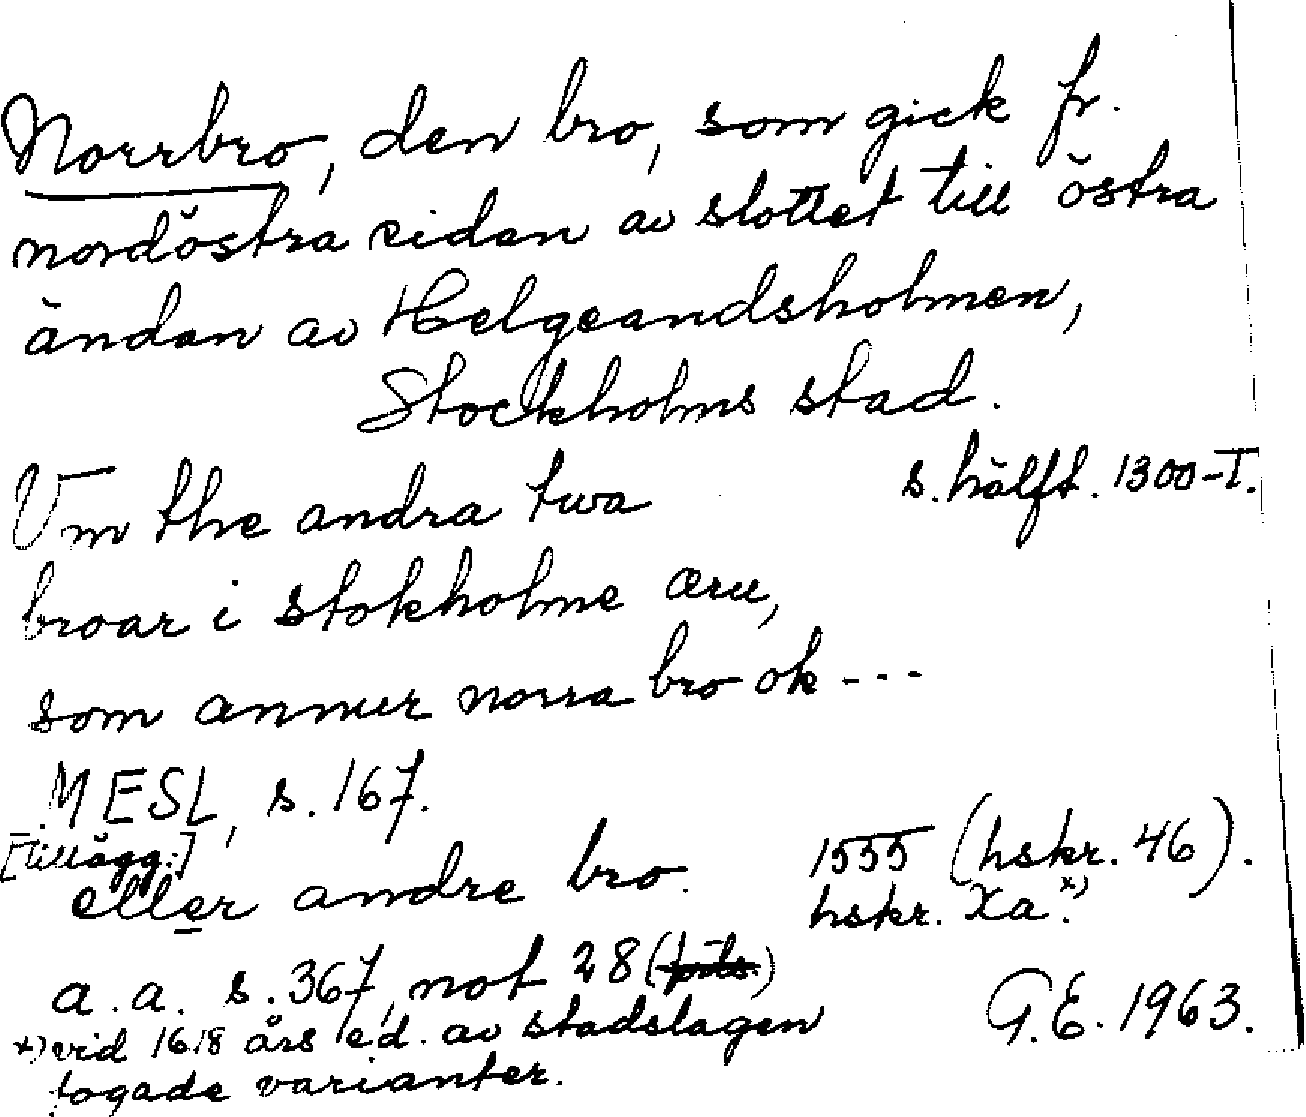 Norrbro, den bro, som gick fr.
nordöstra sidan av slottet till östra
ändan av Helgeandsholmen,
Stockholms stad.
Vm the andra twa s. hälft. 1300-T.
broar i stokholme æru,
som annur norra bro ok ---
MESL, s. 167.
[tillägg:]
eller andre bro. 1555 (hskr. 46).
hskr. Xa.*)
a.a. s. 367, not 28
*) vid 1618 års ed. av stadslagen G.E. 1963.
fogade varianter.